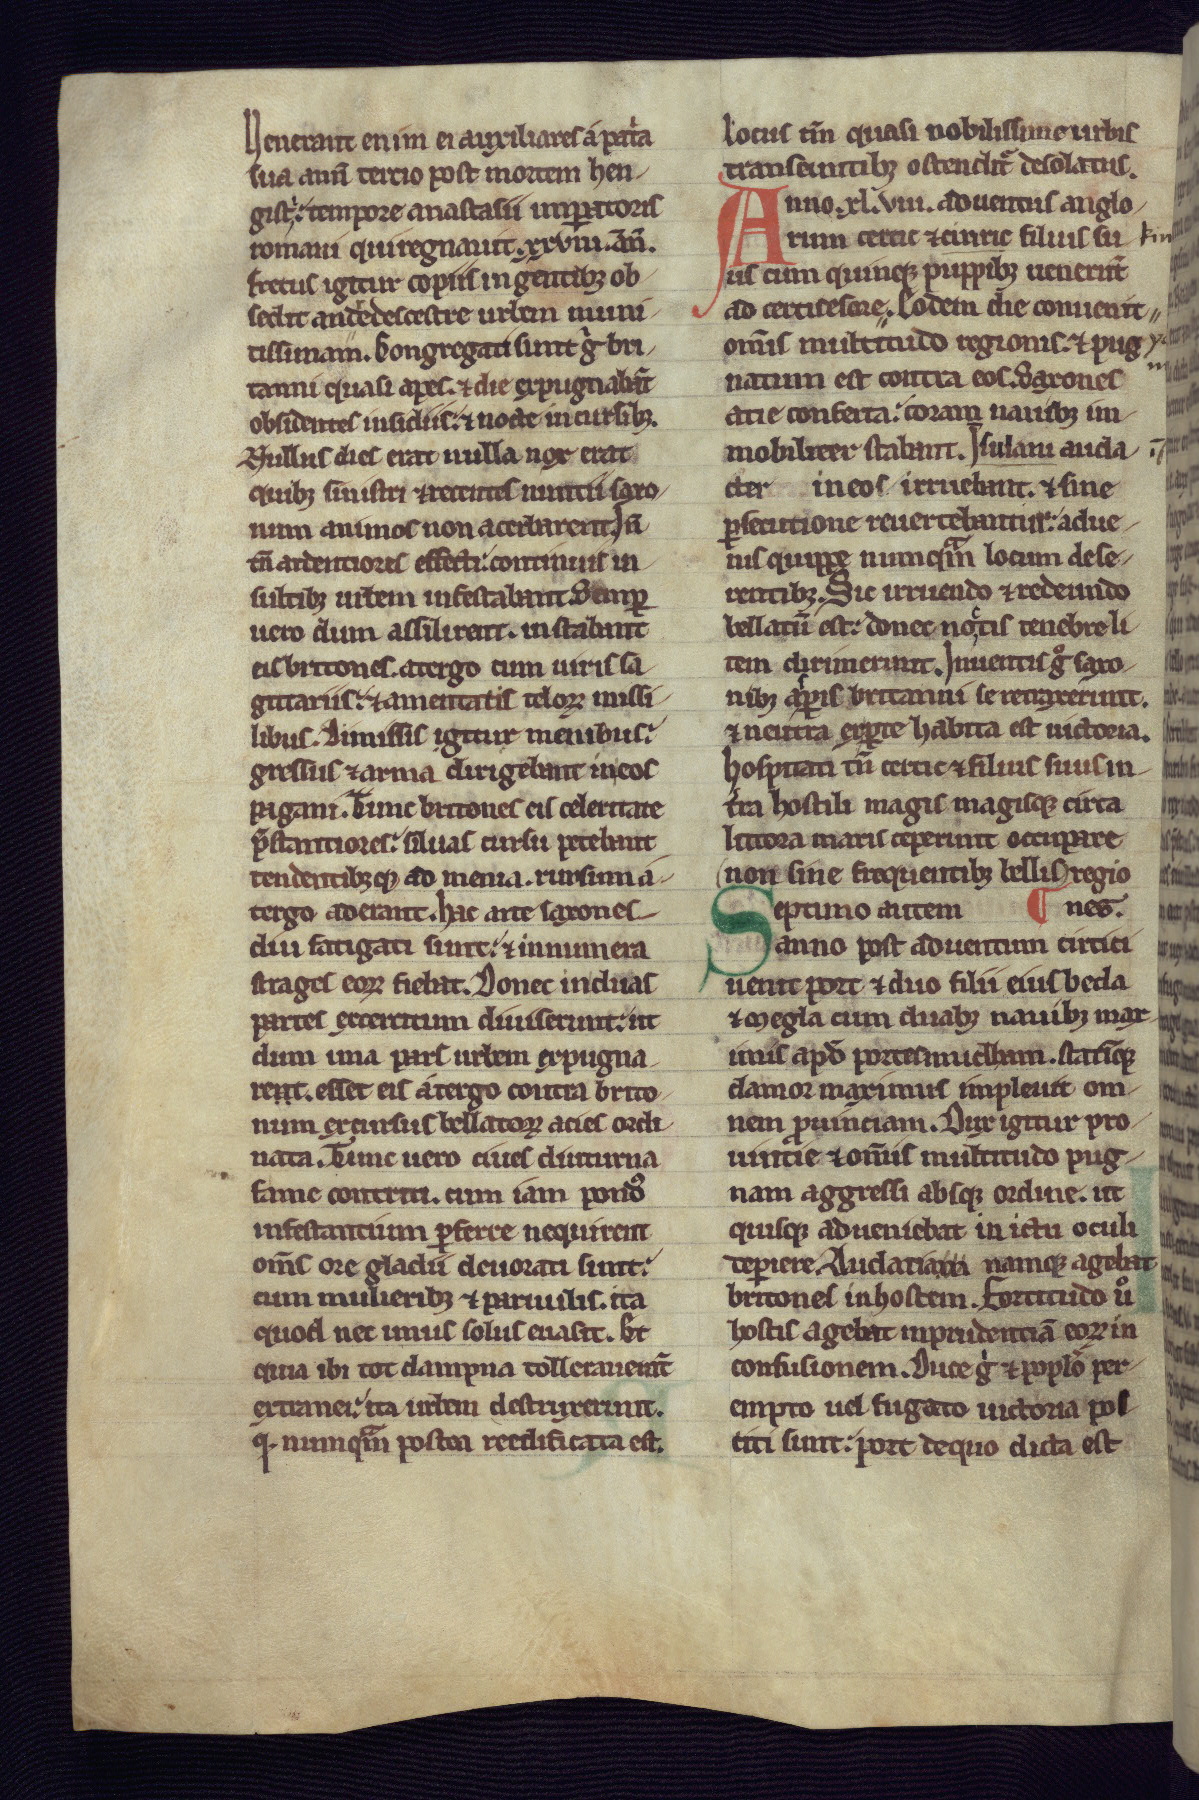 Venerant enim ei auxiliares á pat̃a
sua anñ tercio post mortem hen-
gisti: tempore anastasii imꝑatoris
romani qui regnauit .xxviii. Añ.
fretus igitur copiis ingentibꝫ ob
sedit andedescestre urbem muni-
tissimam. Congregati sunt g̊ bri-
tanni quasi apes. ⁊ die expugnabãt
obsidentes insidiis: ⁊ nocte incursibꝫ.
Nullus dies erat nulla nox erat
quibꝫ sinistri ⁊ recentes nuntii saxo-
num animos non acerbarent. In̄
tñ ardentiores effecti: continuis in-
sultibꝫ urbem infestabant. Semꝑ
uero dum assilirent. instabant
eis britones. atergo cum uiris sa-
gittariis: ⁊ amentatis teloꝝ missi-
libus. Dimissis igitur menibus:
gressus ⁊ arma dirigebant in eos
pagani. Tunc britones eis celeritate
p̃stantiores: siluas cursu petebant
tendentibꝫqꝫ ad menia. rursum á-
tergo aderant. hac arte saxones
diu fatigati sunt: ⁊ innumera
strages eoꝝ fiebat. Donec in duas
partes exercitum diuiserunt: ut
dum una pars urbem expugna-
rent. esset eis átergo contra brito-
num excursus bellatoꝝ acies ordi-
nata. Tunc uero ciues diuturna
fame contriti. cum iam pond̾
infestantium ꝑferre nequirent
om̃s ore gladii deuorati sunt:
cum mulieribꝫ ⁊ paruulis. ita
quod nec unus solus euasit. Et
quia ibi tot dampna tollerauerũt
extranei: ita urbem destruxerunt.
q. numqᵃm postea reedificata est.
Locus tm̃ quasi nobilissime urbis
transeuntibꝫ ostendit̃ desolatus.
Anno .xl.viii. aduentus anglo-
rum certic ⁊ cinric filius su-
us cum quinqꝫ puppibꝫ uenerũt
ad certicesore. Eodem die conuenit
om̃is multitudo regionis. ⁊ pug
natum est contra eos. Saxones
acie conferta: coram nauibꝫ im-
mobiliter stabant. Isulani auda-
cter in eos irruebant. ⁊ sine
ꝑsecutione reuertebantur: adue-
nis quippe numqᵃm locum dese-
rentibꝫ. Sic irruendo ⁊ redeundo
bellatũ est: donec noctis tenebre li-
tem dirimerunt. Inuentis g̊ saxo-
nibꝫ asꝑis britanni se retraxerunt.
⁊ neutra exꝑte habita est uictoria.
hospitati tñ certic ⁊ filius suus in-
t̃ra hostili magis magisqꝫ circa
littora maris ceperunt occupare
non sine frequentibꝫ bellis regio
Septimo autem nes.
anno post aduentum cirtici
uenit port ⁊ duo filii eius beda
⁊ megla cum duabꝫ nauibꝫ max-
imis apđ portesmudham. statĩqꝫ
clamor maximus impleuit om-
nem ꝓuinciam. Dux igitur pro-
uintie ⁊ om̃is multitudo pug-
nam aggressi absqꝫ ordine. ut
quisqꝫ adueniebat in ictu oculi
tepiere. Audatia namqꝫ agebat
britones in hostem. Fortitudo ů
hostis agebat inprudentiã eoꝝ in
confusionem. Duce g̊ ⁊ poplo per-
empto uel fugato uictoria pos
titi sunt: port de quo dicta est